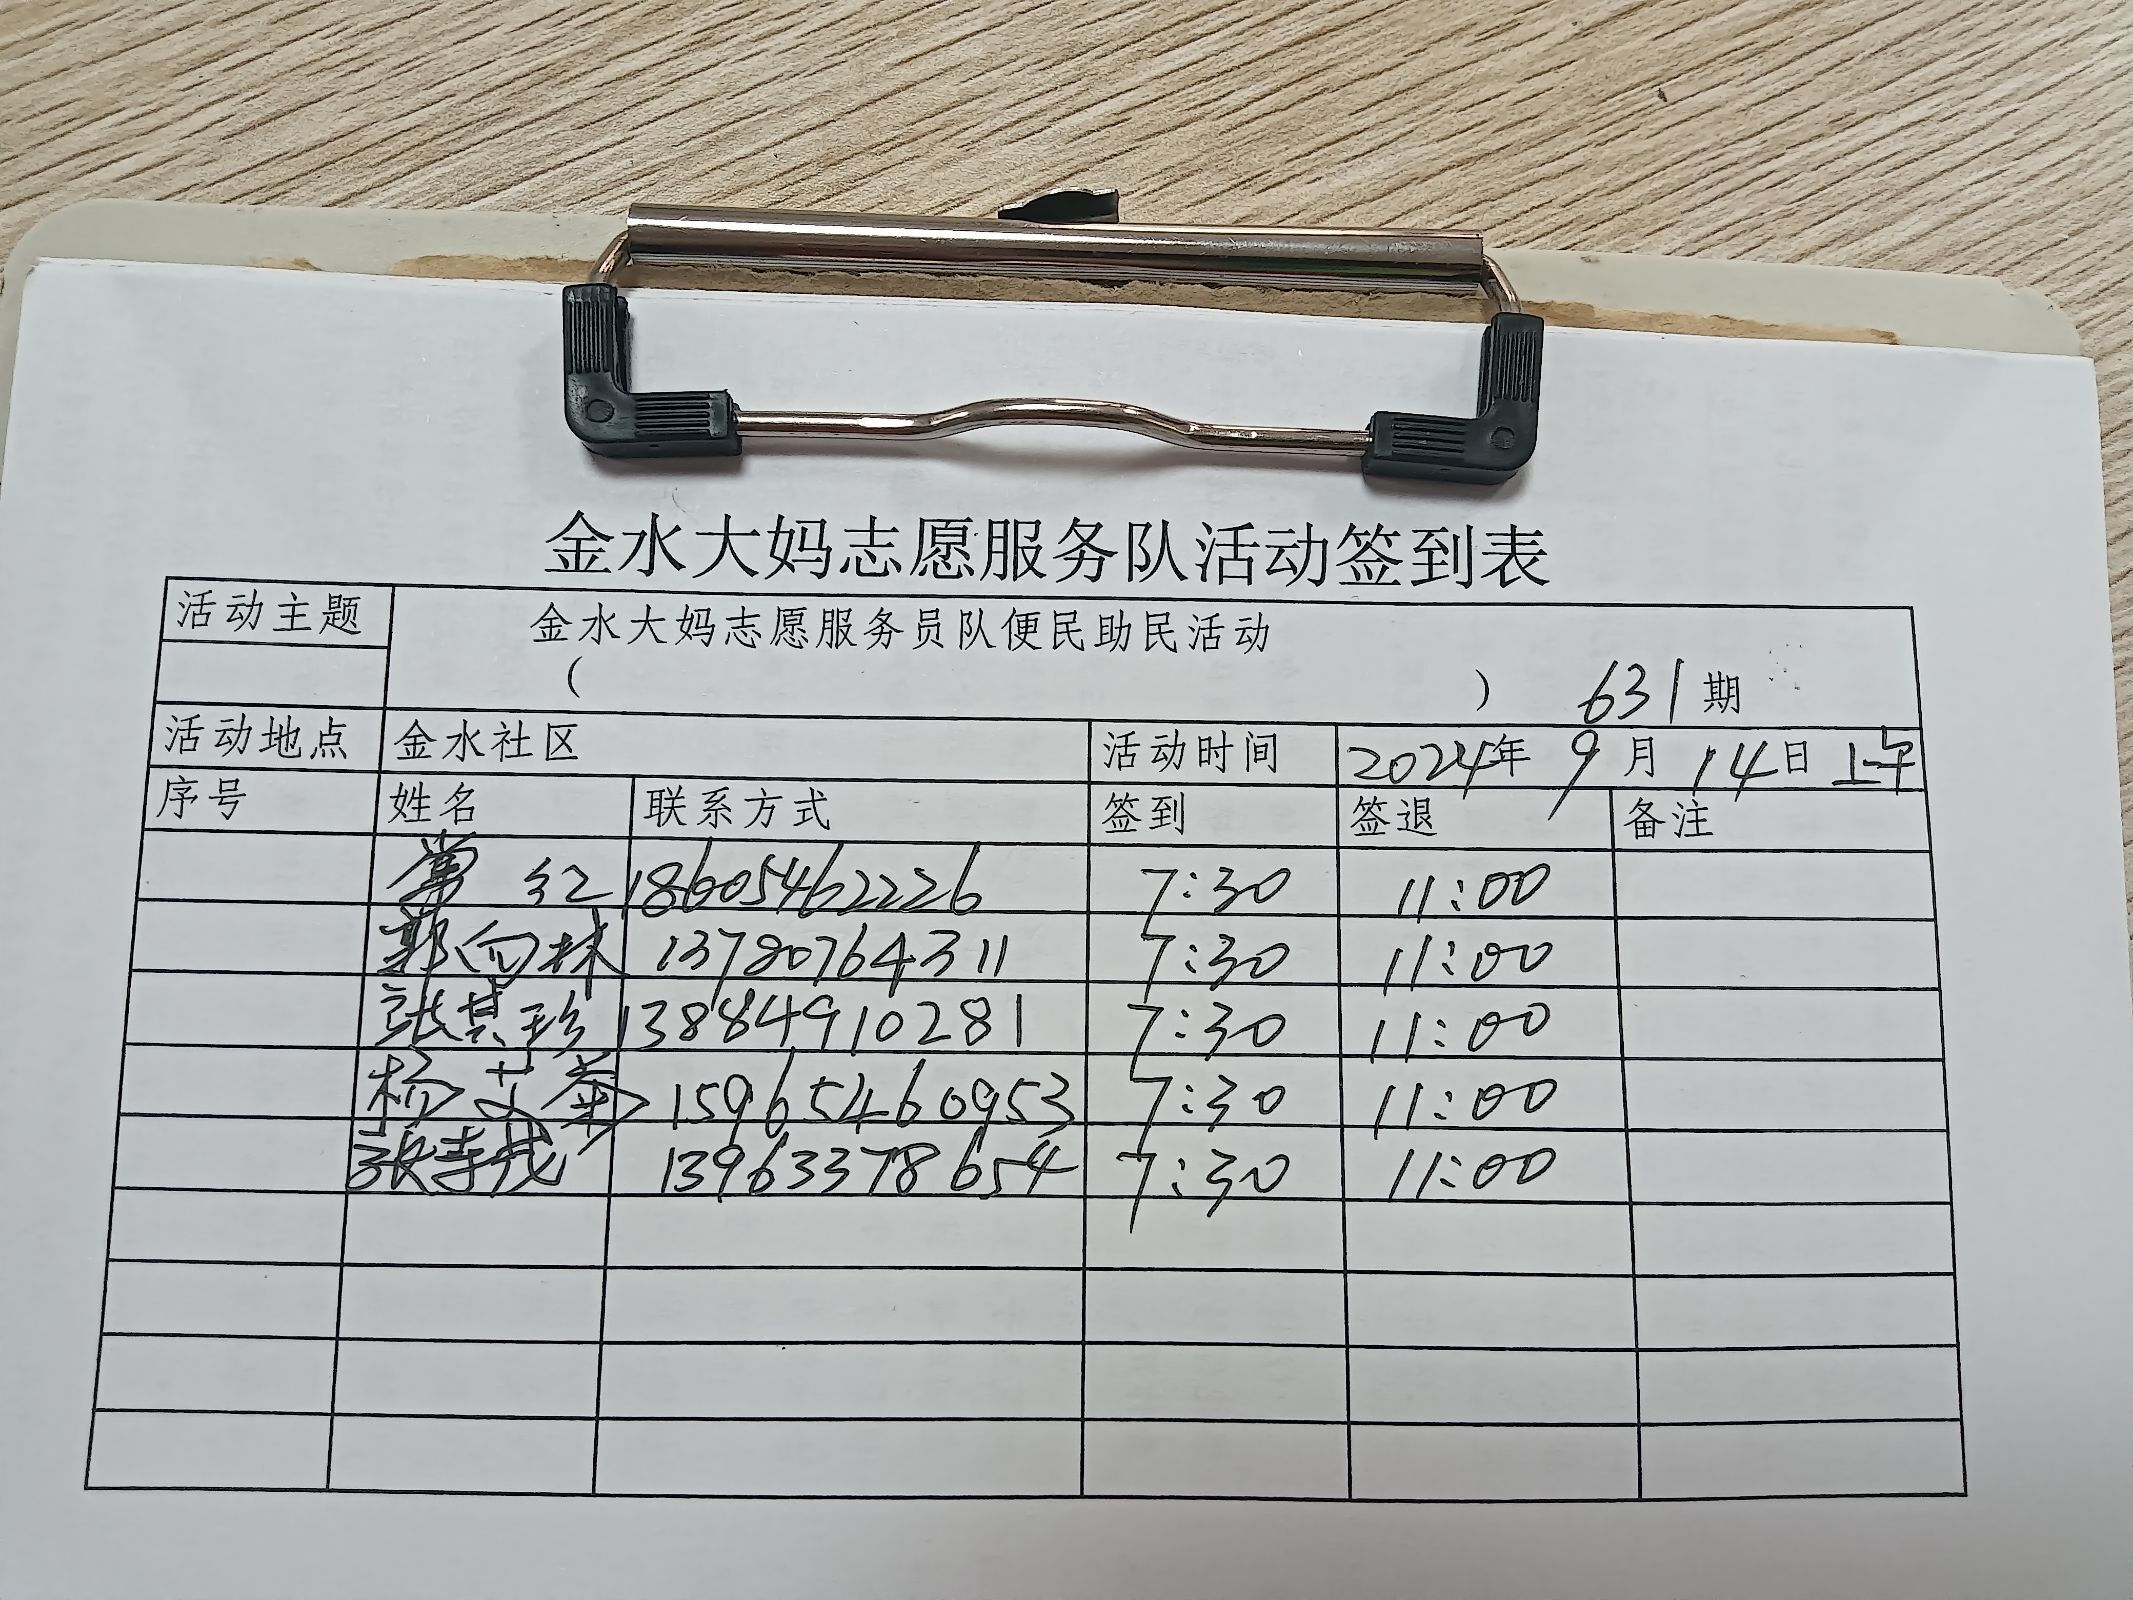 金水大妈志愿服务队活动签到表
活动主题 金水大妈志愿服务员队便民助民活动
( ) 631期
活动地点 金水社区 活动时间 2024年 9月 14日 上午
序号 姓名 联系方式 签到 签退 备注
红 18605462226 7:30 11:00
郭向林 13780764311 7:30 11:00
张其珍 13884910281 7:30 11:00
杨艾菊 15965460953 7:30 11:00
张 13963378654 7:30 11:00